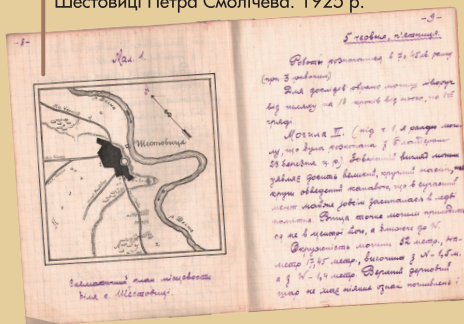 Шестовиці Петра Смолічева. 1925 р.
-8-
Мал. 1.
Шестовиця
р. Десна
Схематичний план місцевости
біля с. Шестовиці.
-9-
5 червня, п'ятниця.
Роботи розпочато в 7 г. 45 хв. ранку
(при 3 робочих)
Для дослідів обрано могилу ліворуч
від шляху на 18 кроків від нього, по
гряді.
Могила II. (під ч. 1 я рахую моги-
лу, що була розкопана
23 березня ц.р.) Зовнішній вигляд могили
уявляє досить великий, круглий насип,
кругом обведений канавою, що в сучасний
мент майже зовсім засипалась й ледві
помітна. Вища точка могили приходить-
ся не в центрі його, а ближче до N.
Округлість могили 52 метр., діа-
метр 17,45 метр., височина з N - 1,6 м.
а з W - 1,4 метр. Верхній дерновий
шар не має ніяких ознак